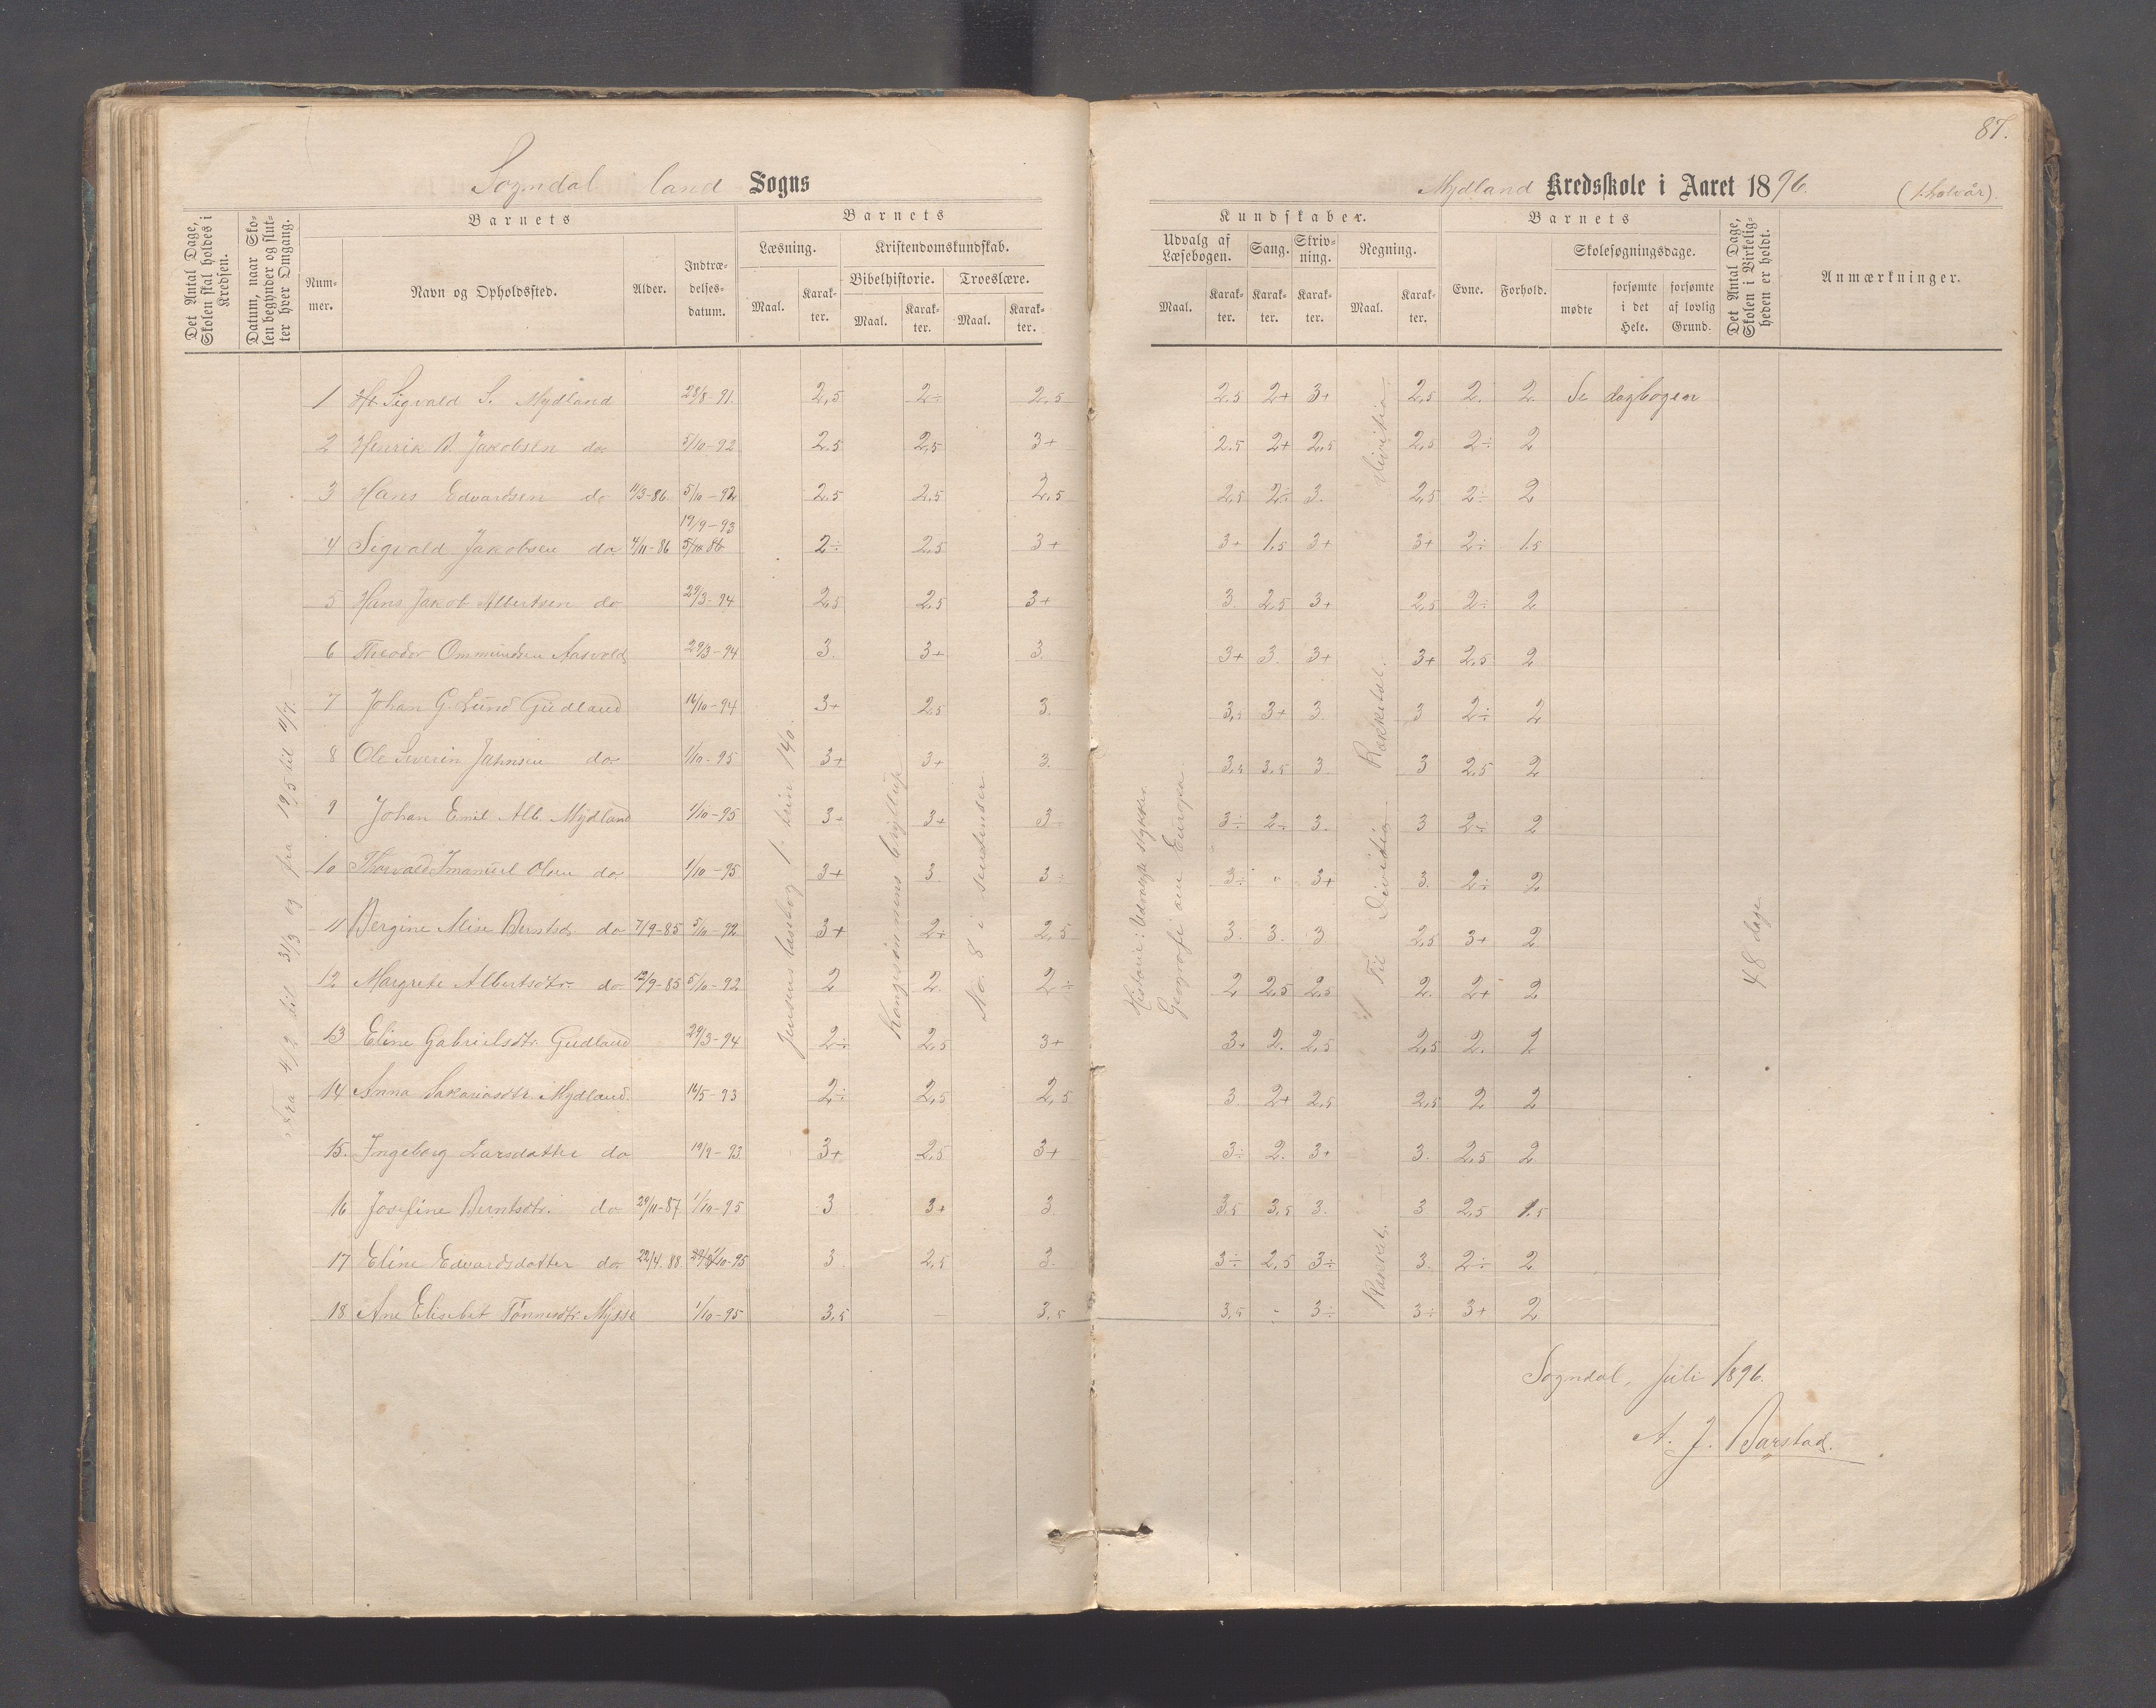 87.
Sogndal land Sogns
Mydland Kredsskole i Aaret 1896. (1. halvår).
Det Antal Dage, Skolen skal holdes i Kredsen.
Datum, naar Skolen begynder og slutter hver Omgang.
Barnets
Nummer.
Navn og Opholdssted.
Alder.
Indtrædelsesdatum.
Barnets
Læsning.
Maal.
Karakter.
Kristendomskundskab.
Bibelhistorie.
Maal.
Karakter.
Troeslære.
Maal.
Karakter.
Kundskaber.
Udvalg af Læsebogen.
Maal.
Karakter.
Sang.
Karakter.
Skrivning.
Karakter.
Regning.
Maal.
Karakter.
Barnets
Evne.
Forhold.
Skolesøgningsdage.
mødte
forsømte i det Hele.
forsømte af lovlig Grund.
Det Antal Dage, Skolen i Virkeligheden er holdt.
Anmærkninger.
1 Sigvald S. Mydland 28/8-91. 2,5 2÷ 2,5 2.5 2+ 3+ 2,5 2. 2. Se dagbogen
2 Henrik B. Jakobsen do 5/10-92 2.5 2,5 3+ 2.5 2+ 2,5 2,5 2÷ 2
3 Hans Edvardsen do 11/3-86. 5/10-92 2.5 2.5 2,5 2,5 2÷ 3. 2,5 2÷ 2
19/9-93
4 Sigvald Jakobsen do 4/11-86 2÷ 2,5 3+ 3+ 1,5 3+ 3+ 2÷ 1.5
5 Hans Jakob Albertsen do 29/3-94 2,5 2.5 3+ 3. 2,5 3+ 2,5 2÷ 2
6 Theodor Ommundsen Aasvold 29/3-94 3. 3+ 3. 3+ 3. 3+ 3+ 2,5 2
7 Johan G. Lund Gudland 16/10-94 3+ 2,5 3. 3,5 3+ 3. 3 2÷ 2
8 Ole Severin Jahnsen do 1/10-95 3+ 3+ 3. 3,5 3,5 3 3 2,5 2
9 Johan Emil Alb. Mydland 1/10-95 3+ 3+ 3 3÷ 2÷ 3. 3 2÷ 2
10 Thorvald Imanuel Olsen do 1/10-95 3+ 3. 3÷ 3÷ " 3+ 3. 2÷ 2
11 Bergine Berntsdr. do 7/9-85 5/10-92 3+ 2÷ 2,5 3. 3. 3 2,5 3+ 2
12 Margrete Albertsdtr. do 12/9-85 5/10-92 2 2. 2÷ 2 2,5 2,5 2. 2+ 2
13 Eline Gabrielsdtr. Gudland 29/3-94 2÷ 2,5 3+ 3+ 2. 2,5 2,5 2. 2
14 Anna Sakariasdtr. Mydland. 16/5-93 2÷ 2,5 2,5 3. 2+ 2,5 2,5 2 2
15. Ingeborg Larsdatter do 19/9-93 3+ 2,5 3+ 3÷ 2. 3+ 3. 2,5 2
16 Josefine Berntsdtr. do 29/11-87 1/10-95 3 3+ 3. 3,5 3,5 3. 3 2,5 1.5
17 Eline Edvardsdatter do 22/4.88 1/10-95 3. 2,5 3. 3÷ 2,5 3÷ 3. 2÷ 2
18 Ane Elisebet Tönnesdtr. Mysse 1/10-95 3,5 — 3,5 3,5 - 3÷ 3÷ 3+ 2
Fra 4/2 til 31/3 og fra 19/5 til 11/7.
Jensens læsebog 1. trin 140.
No. 8 i
Historie: Udvalgte stykker
Geografi om Europa
Til Division
Division
48 dage
Sogndal, juli 1896.
A. J. Barstad.